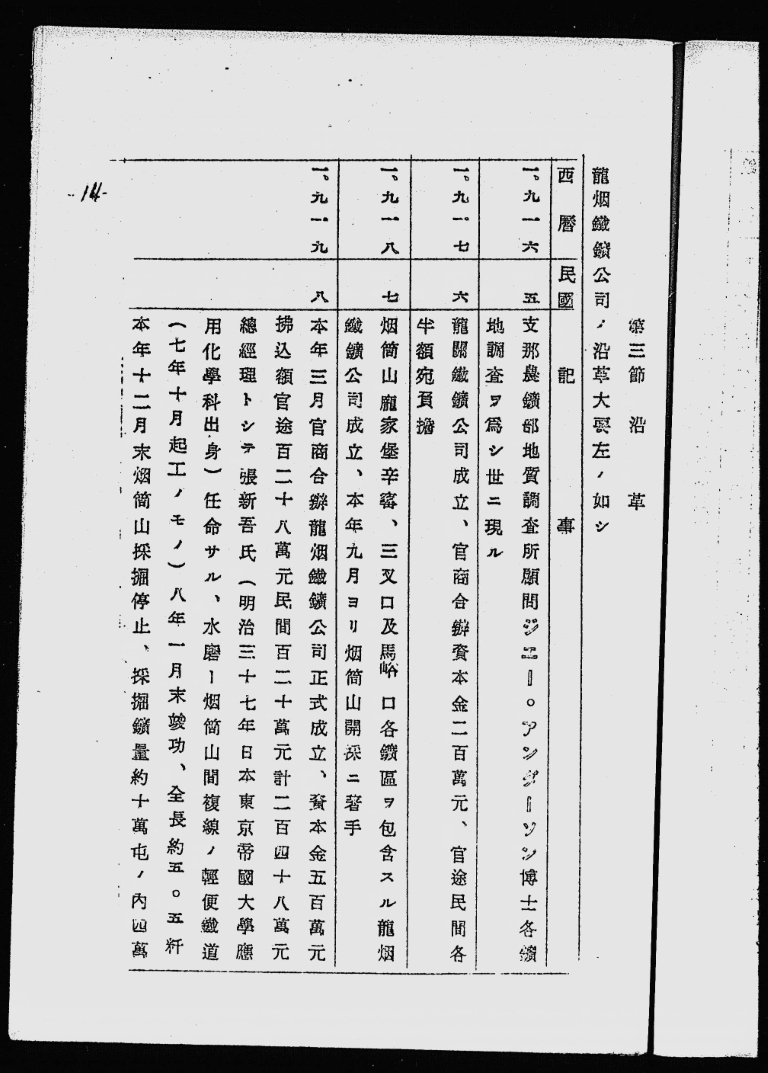 第三節 沿革
龍烟鐵鑛公司ノ沿革大要左ノ如シ
西曆 民國 記事
一、九一六 五 支那農鑛部地質調査所顧問ジエー。アンダーソン博士各鑛
地調査ヲ爲シ世ニ現ル
一、九一七 六 龍關鐵鑛公司成立、官商合辦資本金二百萬元、官途民間各
半額宛負擔
一、九一八 七 烟筒山龐家堡辛窰、三叉口及馬峪口各鑛區ヲ包含スル龍烟
鐵鑛公司成立、本年九月ヨリ烟筒山開採ニ著手
一、九一九 八 本年三月官商合辦龍烟鐵鑛公司正式成立、資本金五百萬元
拂込額官途百二十八萬元民間百二十萬元計二百四十八萬元
總經理トシテ張新吾氏(明治三十七年日本東京帝國大學應
用化學科出身)任命サル、水磨ー烟筒山間複線ノ輕便鐵道
(七年十月起工ノモノ)八年一月末竣功、全長約五。五粁
本年十二月末烟筒山採掘停止、採掘鑛量約十萬屯ノ內四萬
-14-